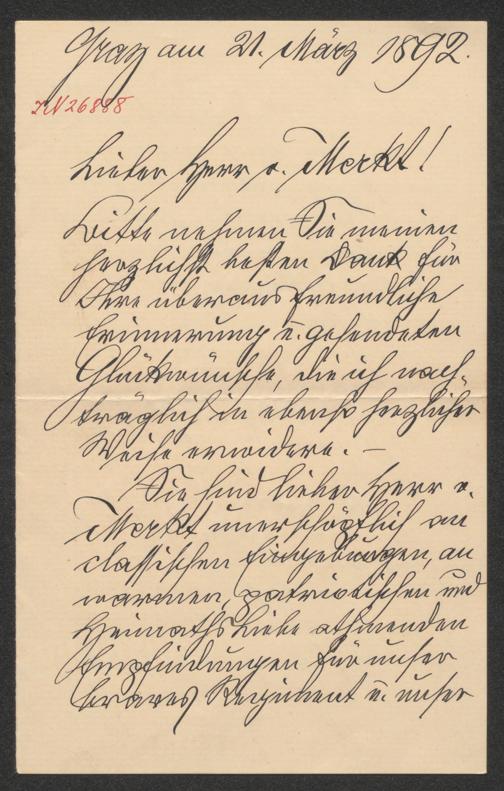 Graz am 21. März 1892.
IN 26888
Lieber Herr v. Merkl!
Bitte nehmen Sie meinen
herzlichst besten Dank für
Ihre überaus freundliche
Erinnerung u. gesendeten
Glückwünsche, die ich nach-
träglich in ebenso herzlicher
Weise erwidere. —
Sie sind lieber Herr v.
Merkl unerschöpflich an
classischen Eingebungen, an
warmen, patriotischen und
Heimaths Liebe athmenden
Empfindungen für unser
braves Regiment u. unser